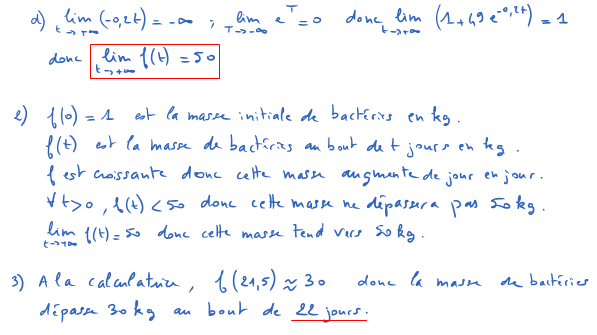 d) lim t→+∞ (-0,2t) = -∞ ; lim T→-∞ e^T = 0 donc lim t→+∞ (1+49e^-0,2t) = 1
donc lim t→+∞ f(t) = 50
2) f(0) = 1 est la masse initiale de bactéries en kg.
f(t) est la masse de bactéries au bout de t jours en kg.
f est croissante donc cette masse augmente de jour en jour.
∀ t>0, f(t) < 50 donc cette masse ne dépassera pas 50 kg.
lim t→+∞ f(t) = 50 donc cette masse tend vers 50 kg.
3) A la calculatrice, f(21,5) ≈ 30 donc la masse de bactéries
dépasse 30 kg au bout de 22 jours.